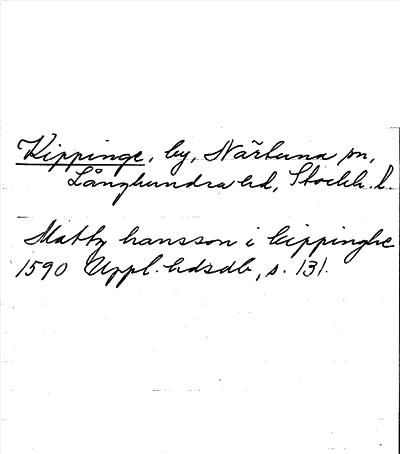 Kippinge, by, Närtuna sn,
Långhundra hd, Stockh. l.
Matz hansson i kippinghe
1590 Uppl. hdsdb, s. 131.